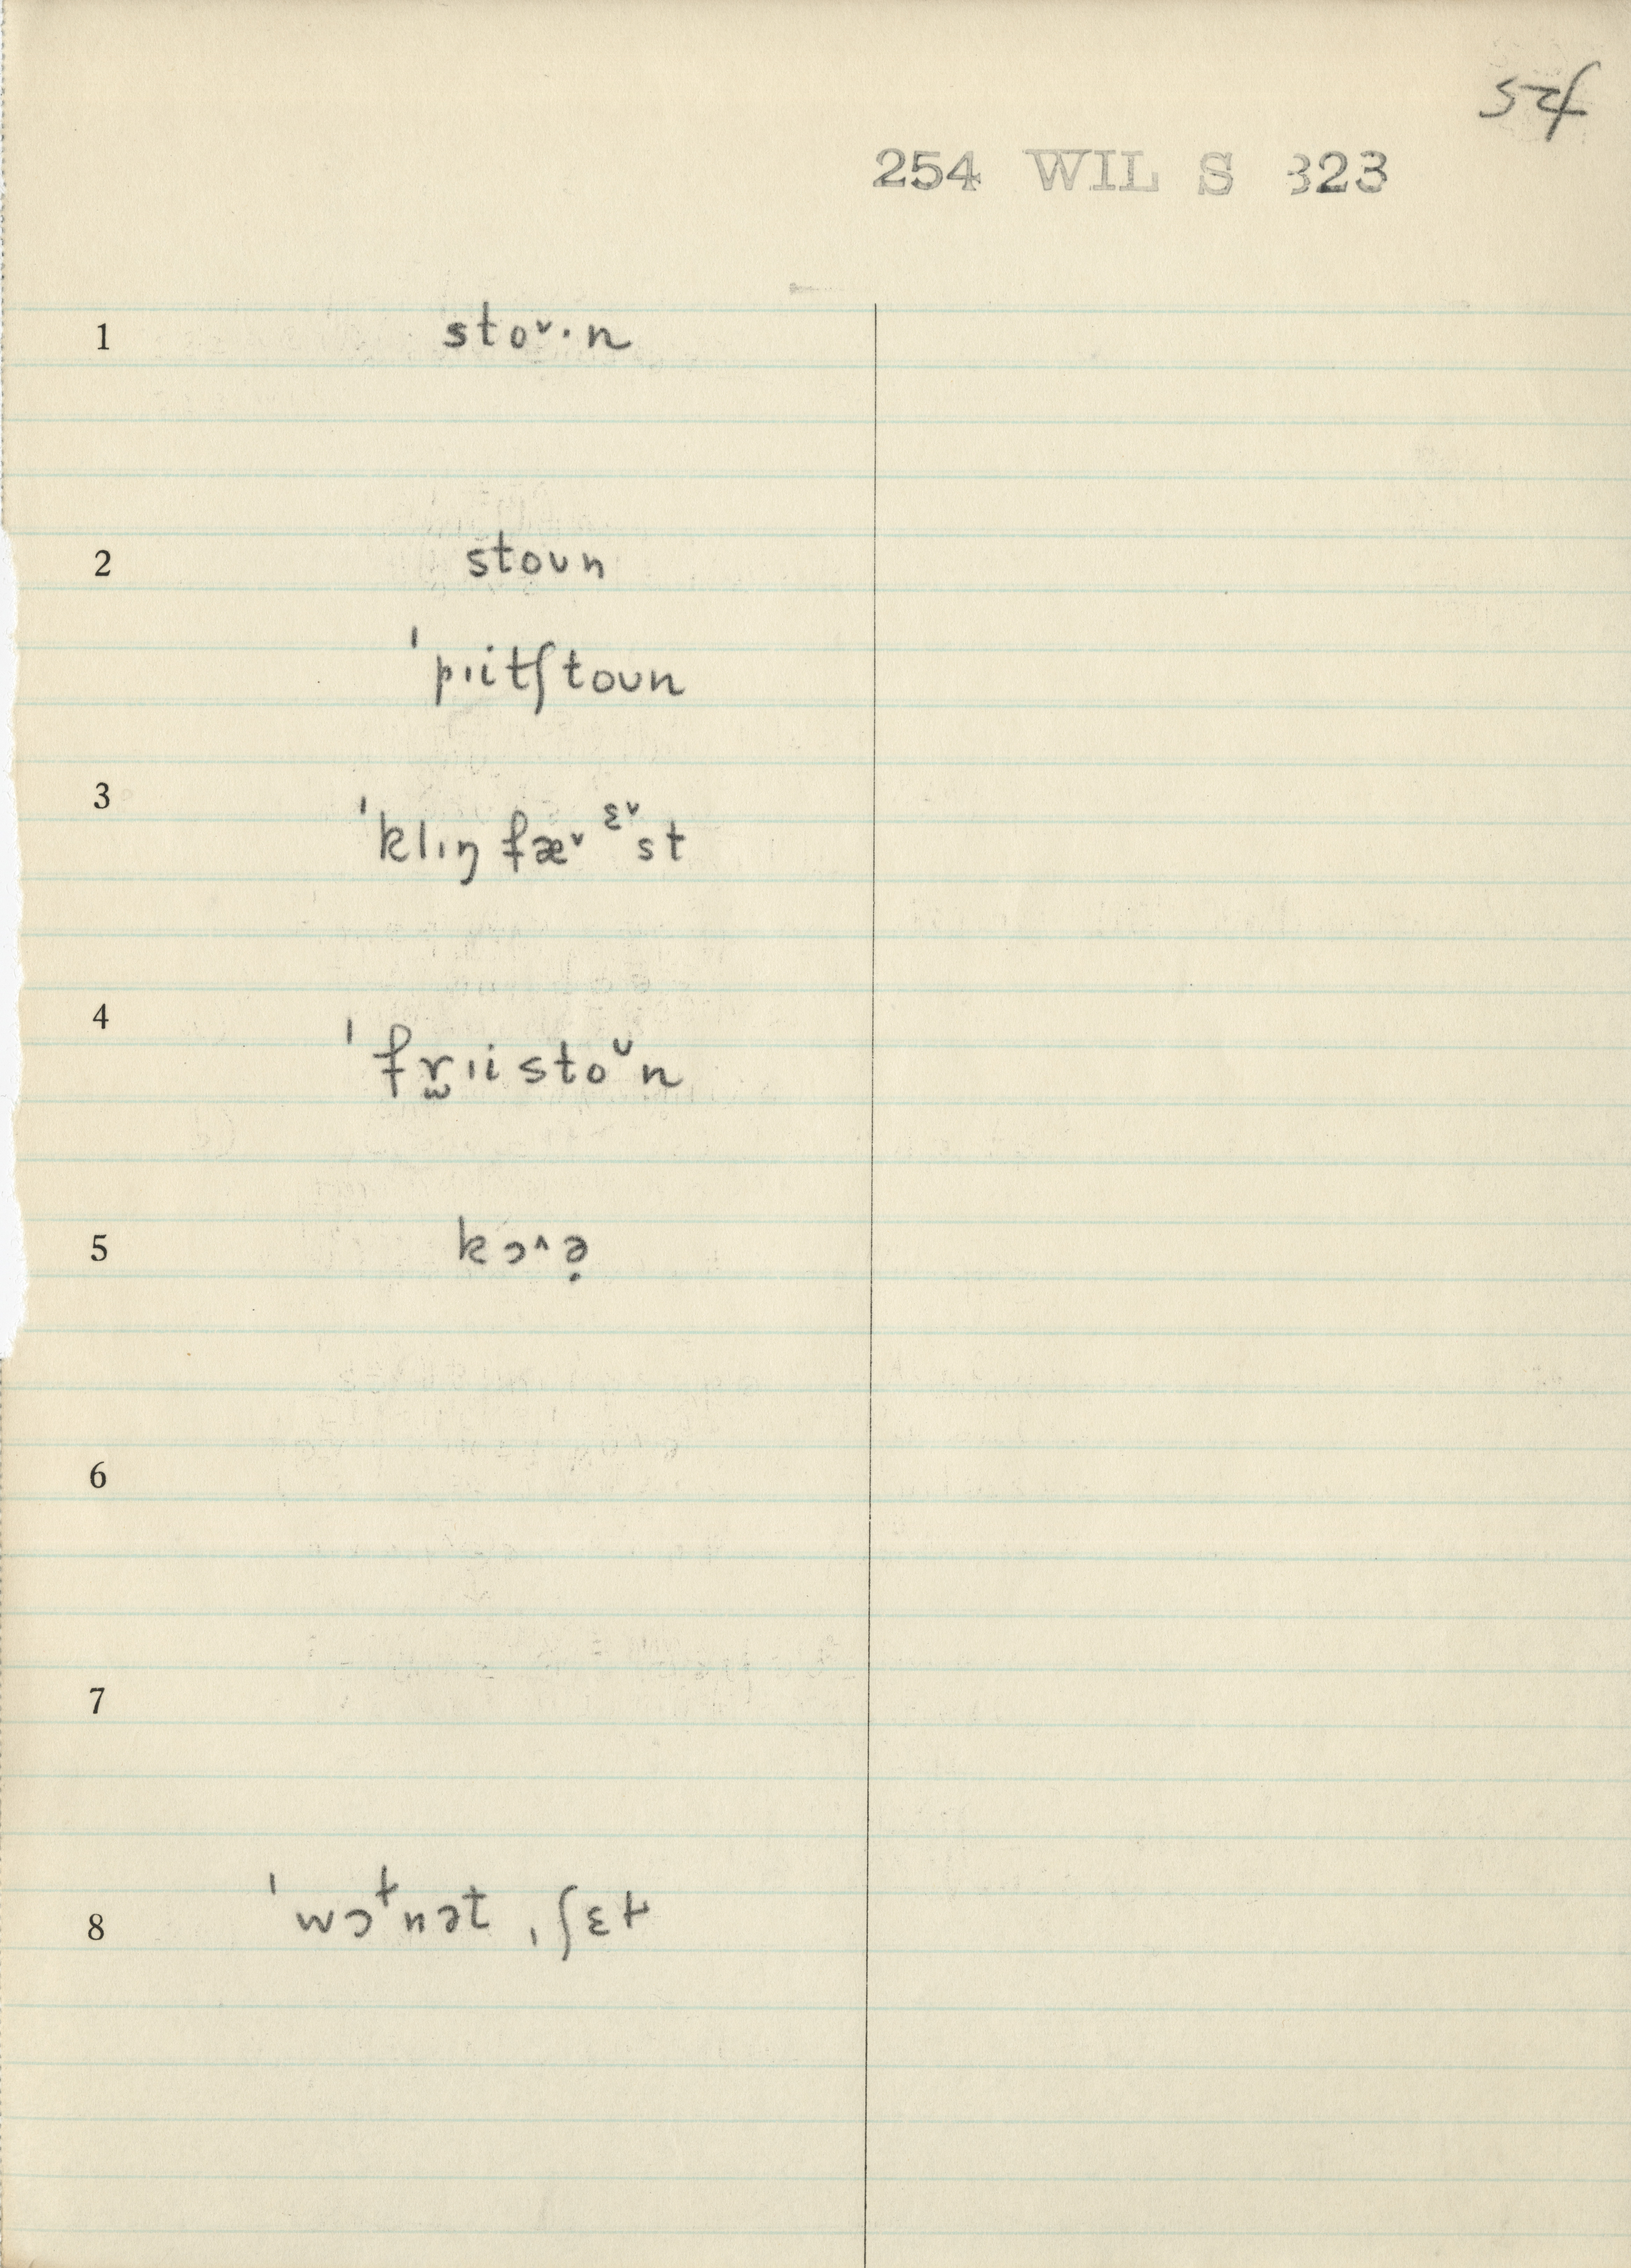 54
254 WIL S 323
1 sto˅·n
2 stoᴜn
ˈpıitʃtoᴜn
3 ˈklıŋfæ˅ ᵋ˅st
4 ˈfr̼ıistoᵁn
5 kɔ˄ə̣
6
7
8 ˈwɔ˔nət ˌʃɛ˔